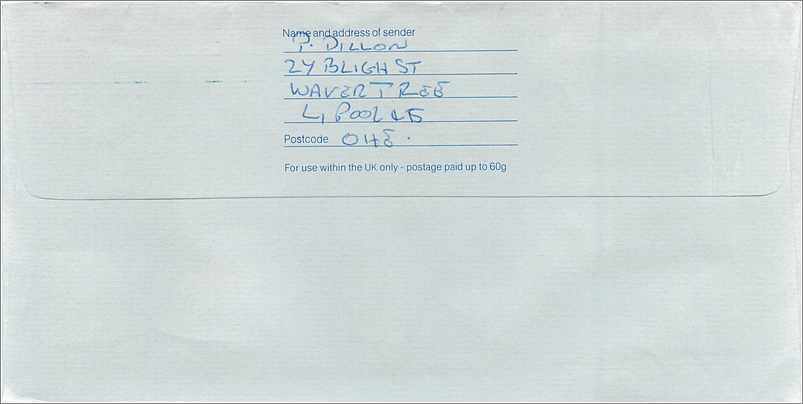 Name and address of sender
P. DILLON
24 BLIGH ST
WAVERTREE
L,POOL
Postcode OHE.
For use within the UK only - postage paid up to 60g